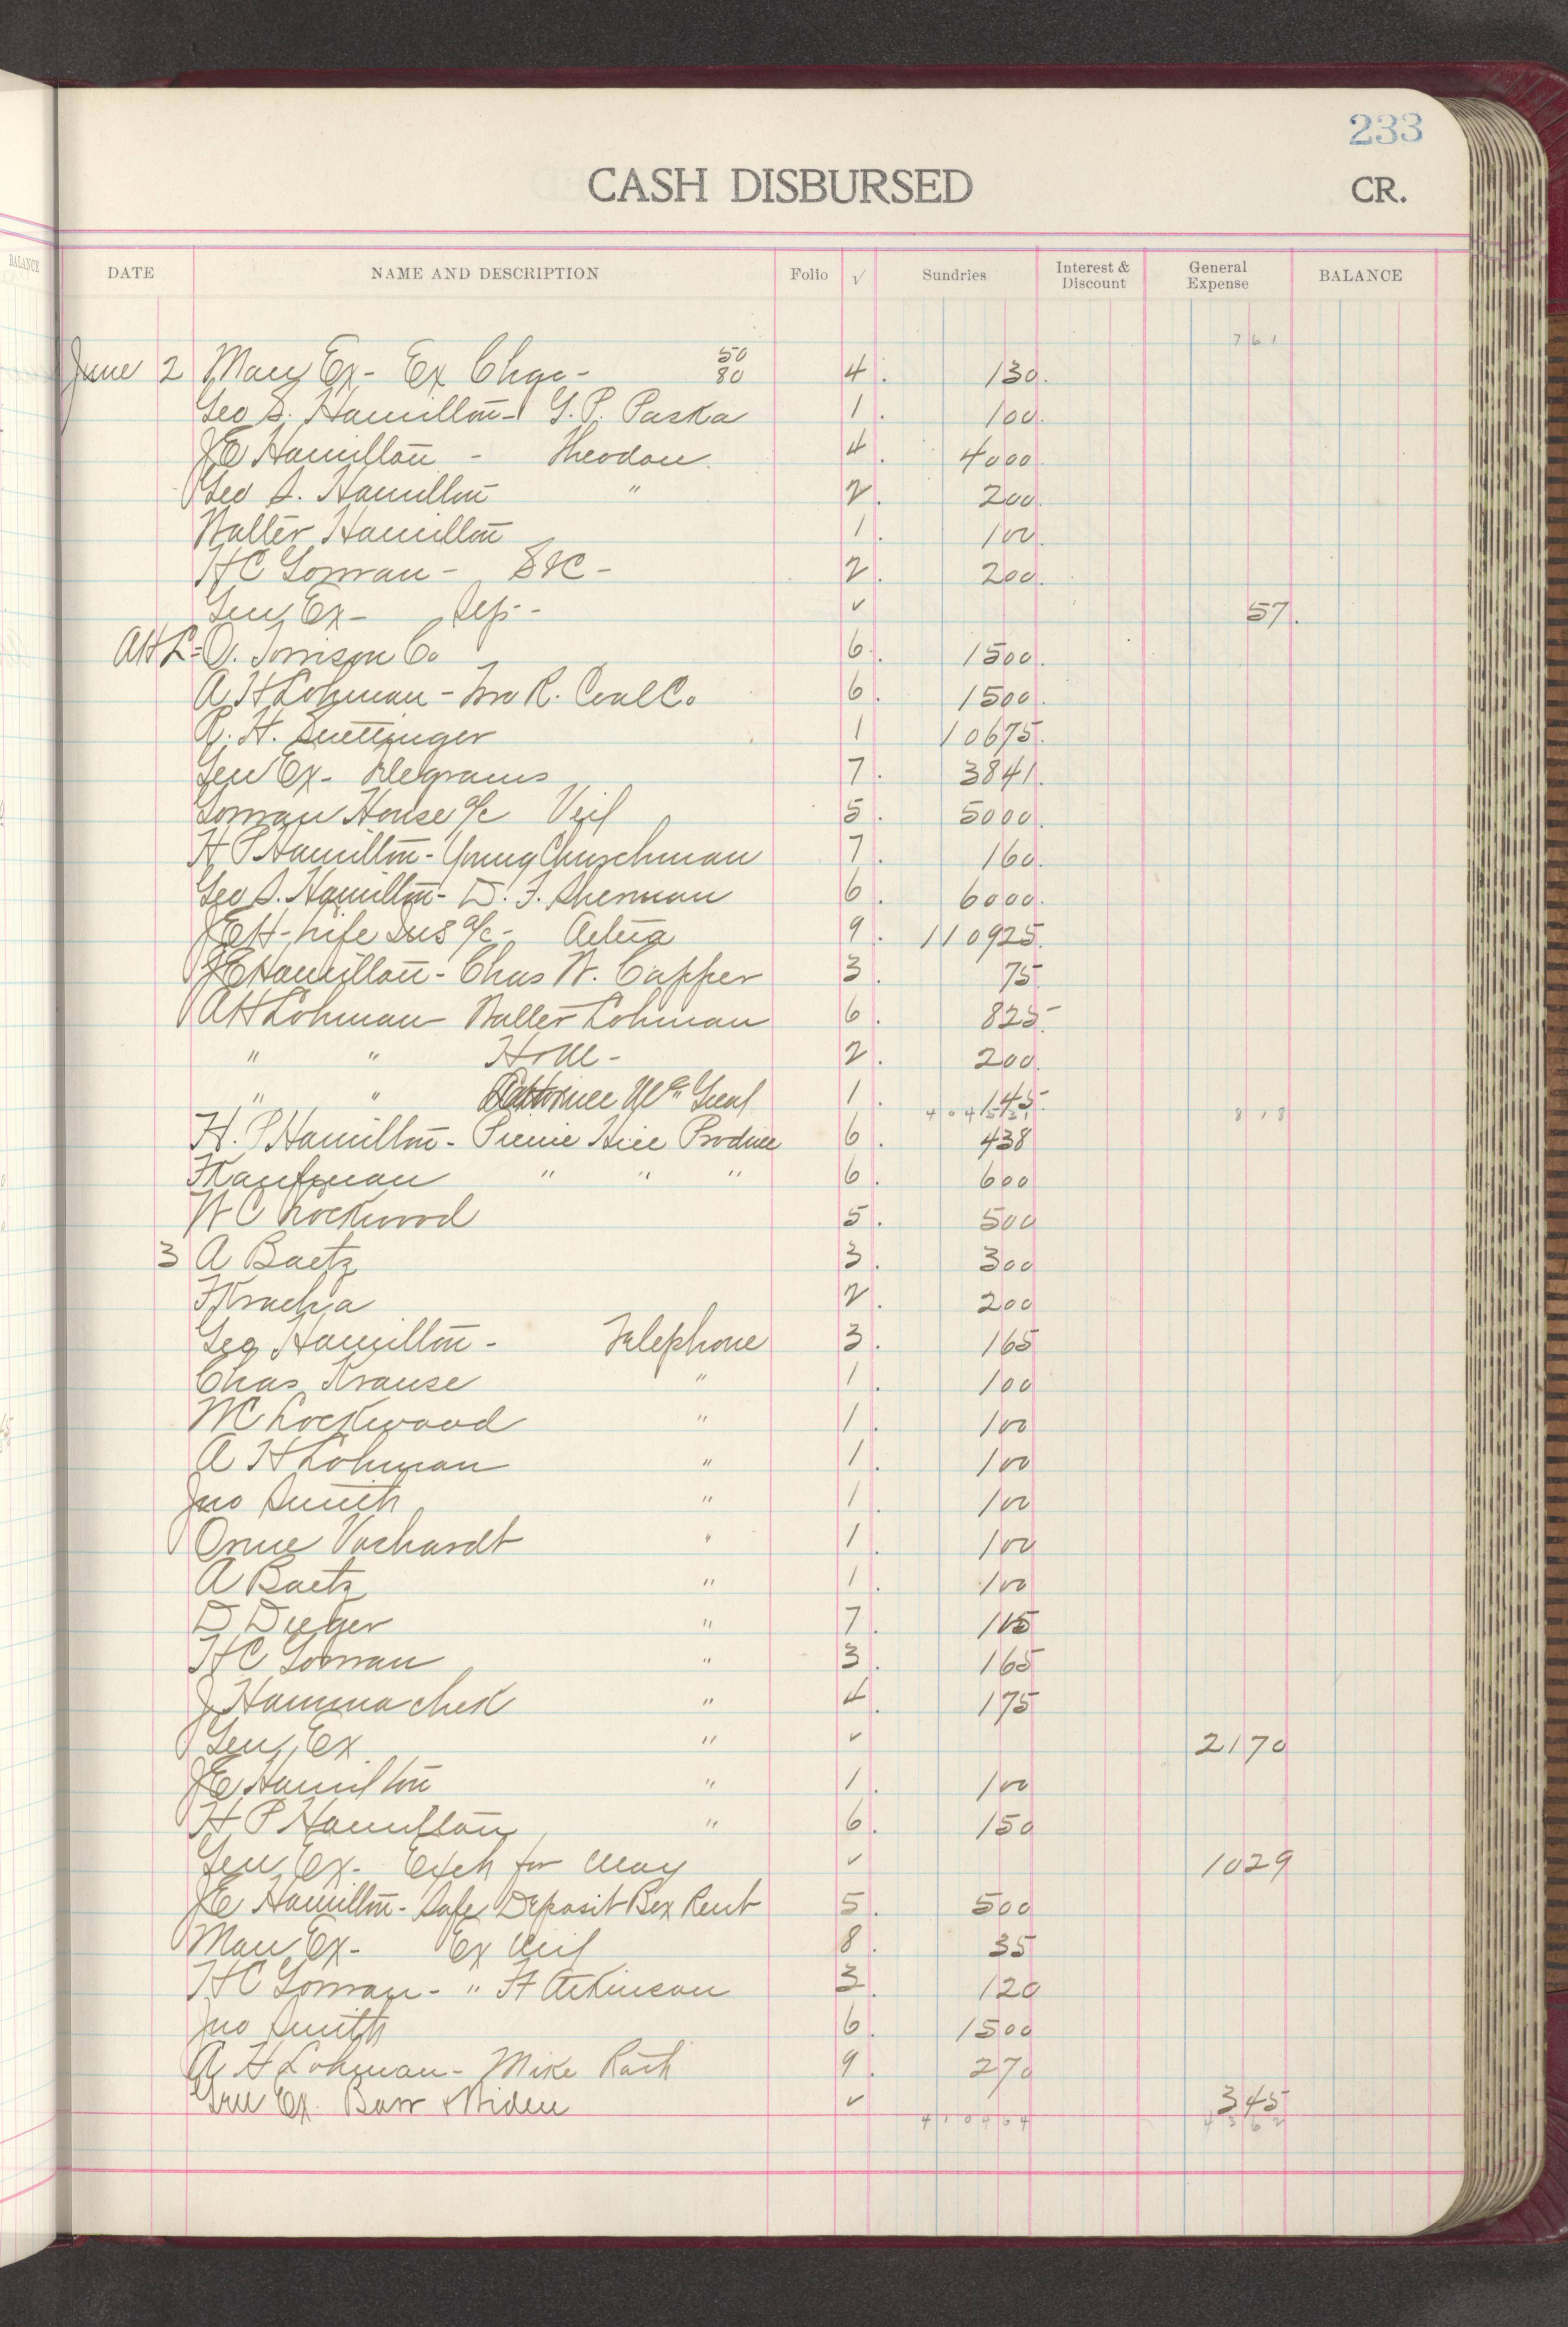 233
CASH DISBURSED CR.
DATE NAME AND DESCRIPTION Folio √ Sundries Interest & Discount General Expense BALANCE
761
50
June 2 Ex- Ex Chgo- 80 4. 130.
Geo S. Hamilton- G.P. Paska 1. 100.
JE Hamilton - Theodore 4. 4000
Geo S. Hamilton " 2. 200.
Walter Hamilton 1. 100.
HC Gorman - 2. 200.
Gen Ex- ✓ 57.
AHL= O. Torrison Co 6. 1500.
A H Lohman - Coal Co 6. 1500.
R. H. Suettinger 1 10675.
Gen Ex- Telegrams 7. 3841.
Gorman House a/c Veil 5. 5000.
H P Hamilton- Young Churchman 7. 160.
Geo S. Hamilton- D. F. Sherman 6 6000.
JEH- Life Ins a/c- Aetna 9. 110925.
JE Hamilton- Chas W. Capper 3. 75.
AH Lohman Walter Lohman 6. 825.
" " 2. 200.
" " 1. 145.
404521 818
H. P Hamilton- Produce 6. 438
Kaufman " " " 6. 600
W C Lockwood 5. 500
3 A Baetz 3. 300
2. 200
Geo Hamilton- Telephone 3. 165
Chas Krause " 1. 100
WC Lockwood " 1. 100
A H Lohman " 1. 100
Jno Smith " 1. 100
" 1. 100
A Baetz " 1. 100
D " 7. 115
HC Gorman " 3. 165
J Hammachek " 4. 175
Gen Ex " ✓ 2170
JE Hamilton " 1. 100
H P Hamilton " 6. 150
Gen Ex- Exch for May ✓ 1029
JE Hamilton- Safe Deposit Box Rent 5. 500
Man Ex- Ex 8. 35
HC Gorman- " Atkinson 3. 120
Jno Smith 6. 1500
A H Lohman- Mike Rath 9. 270
Gen Ex. ✓ 345
410464 4362